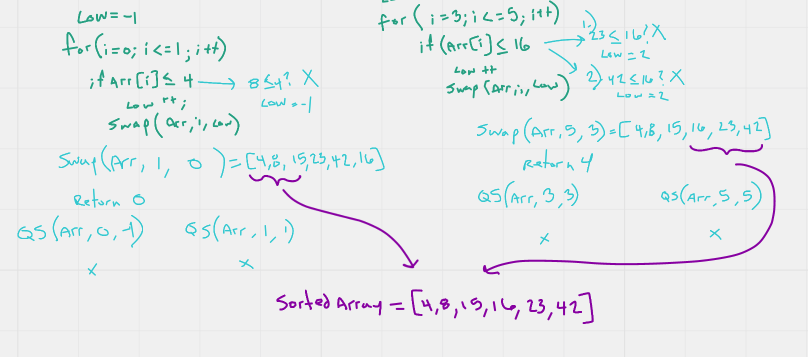 Low=-1
for(i=0; i<=1; i++)
if Arr[i]≤ 4 → 8≤4? X
Low++; Low=-1
Swap(Arr,i,Low)
Swap(Arr, 1, 0)=[4,8,15,23,42,16]
Return 0
QS(Arr,0,-1) QS(Arr,1,1)
x x
for(i=3; i<=5; i++)
if(Arr[i]≤ 16
1.) 23≤16? X
Low=2
Low++
Swap(Arr,i,Low)
2.) 42≤16? X
Low=2
Swap(Arr,5,3)=[4,8,15,16,23,42]
Return 4
QS(Arr,3,3) QS(Arr,5,5)
x x
Sorted Array = [4,8,15,16,23,42]